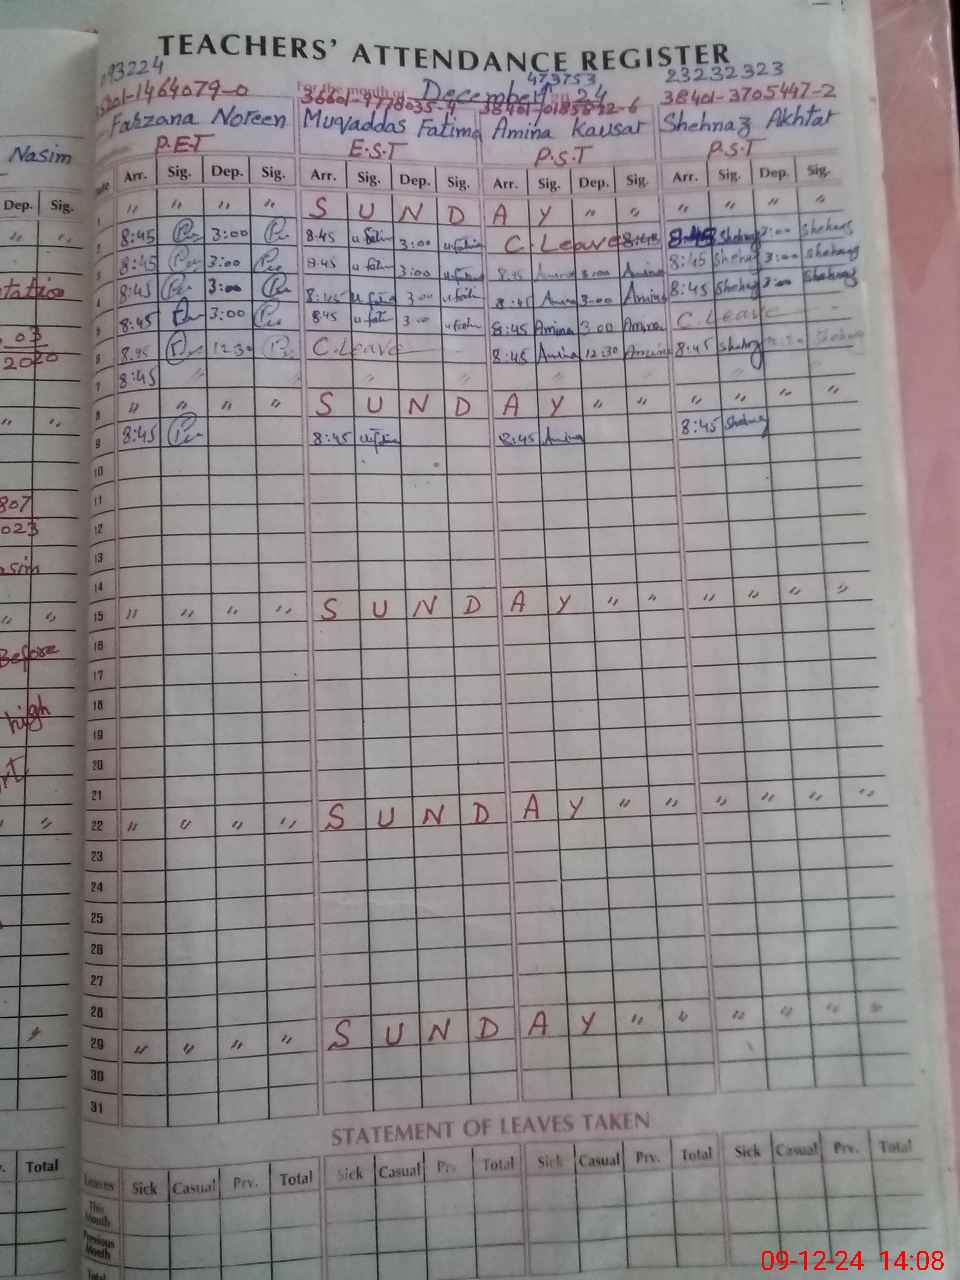 TEACHERS' ATTENDANCE REGISTER
For the month of December 24
93224 473753 23232323
1464079-0 36601-9778035-4 38401-3705447-2
Farzana Noreen Muqaddas Fatima Amina Kausar Shehnaz Akhtar
P.E.T E.S.T P.S.T P.S.T
Arr. Sig. Dep. Sig. Arr. Sig. Dep. Sig. Arr. Sig. Dep. Sig. Arr. Sig. Dep. Sig.
1 " " " " S U N D A Y " " " " " "
2 8:45 3:00 8:45 3:00 C. Leave 8:45 Shehnaz 3:00 Shehnaz
3 8:45 3:00 8:45 3:00 8:45 Amina 3:00 Amina 8:45 Shehnaz 3:00 Shehnaz
4 8:45 3:00 8:45 3:00 8:45 Amina 3:00 Amina 8:45 Shehnaz 3:00 Shehnaz
5 8:45 3:00 8:45 3:00 8:45 Amina 3:00 Amina C. Leave
6 8:45 12:30 C. Leave 8:45 Amina 12:30 Amina 8:45 Shehnaz
7 8:45
8 " " " " S U N D A Y " " " " " "
9 8:45 8:45 8:45 Amina 8:45 Shehnaz
10
11
12
13
14
15 " " " " S U N D A Y " " " " " "
16
17
18
19
20
21
22 " " " " S U N D A Y " " " " " "
23
24
25
26
27
28
29 " " " " S U N D A Y " " " " " "
30
31
STATEMENT OF LEAVES TAKEN
Leaves Sick Casual Prv. Total Sick Casual Prv. Total Sick Casual Prv. Total Sick Casual Prv. Total
This Month
Previous Month
Total
Nasim
Dep. Sig.
03
2020
807
023
Before
high
Total
09-12-24 14:08